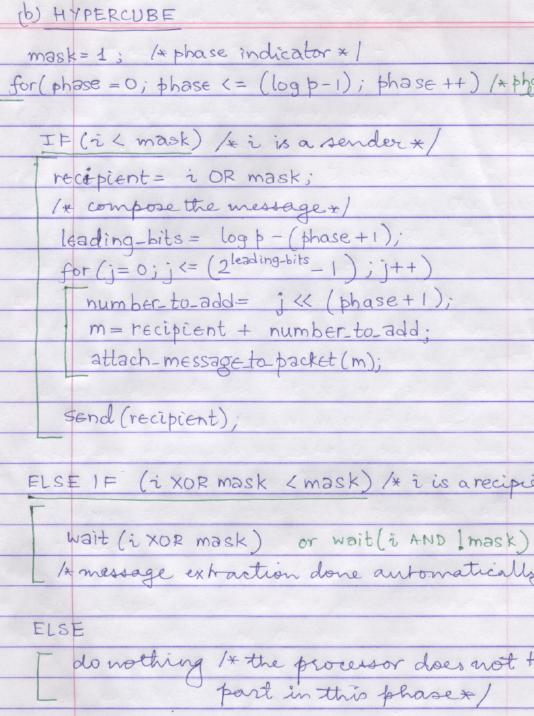 (b) HYPERCUBE
mask = 1; /* phase indicator */
for(phase = 0; phase <= (log p-1); phase ++) /*
IF (i < mask) /* i is a sender */
recipient = i OR mask;
/* compose the message */
leading-bits = log p - (phase+1);
for (j=0; j<= (2^leading-bits - 1); j++)
number_to_add = j << (phase+1);
m = recipient + number_to_add;
attach-message_to_packet(m);
send(recipient);
ELSE IF (i XOR mask < mask) /* i is a
wait (i XOR mask) or wait(i AND !mask)
/* message extraction done automatically
ELSE
do nothing /* the processor does not
part in this phase */